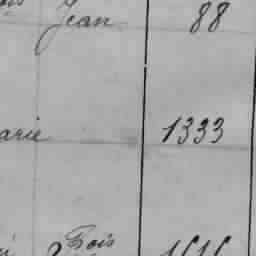 Jean 88
arie 1333
Bois